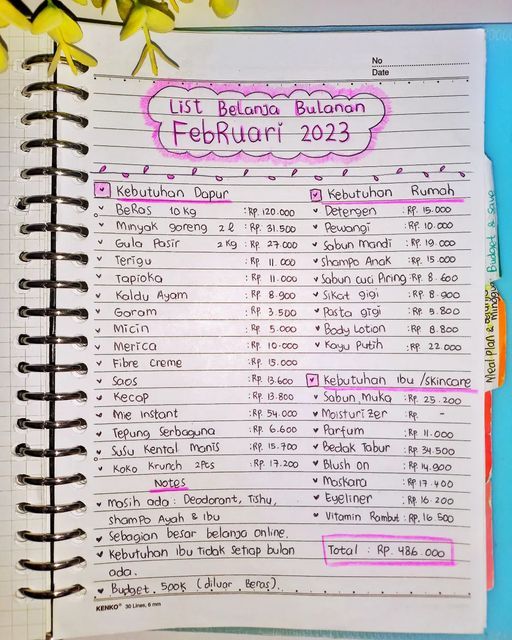 No
Date
List Belanja Bulanan
Februari 2023
Kebutuhan Dapur
Beras 10 kg : Rp. 120.000
Minyak goreng 2 l : Rp. 31.500
Gula Pasir 2 kg : Rp. 27.000
Terigu : Rp. 11.000
Tapioka : Rp. 11.000
Kaldu Ayam : Rp. 8.900
Garam : Rp. 3.500
Micin : Rp. 5.000
Merica : Rp. 10.000
Fibre creme : Rp. 15.000
Saos : Rp. 13.600
Kecap : Rp. 13.800
Mie instant : Rp. 54.000
Tepung Serbaguna : Rp. 6.600
Susu Kental Manis : Rp. 15.700
Koko Krunch 2 Pcs : Rp. 17.200
Notes
Masih ada : Deodorant, Tishu,
shampo Ayah & ibu
Sebagian besar belanja online.
Kebutuhan ibu tidak setiap bulan
ada.
Budget 500k (diluar Beras).
Kebutuhan Rumah
Detergen : Rp. 15.000
Pewangi : Rp. 10.000
Sabun Mandi : Rp. 19.000
Shampo Anak : Rp. 15.000
Sabun cuci Piring : Rp. 8.600
Sikat gigi : Rp. 8.900
Pasta gigi : Rp. 5.800
Body Lotion : Rp. 8.800
Kayu Putih : Rp. 22.000
Kebutuhan Ibu/skincare
Sabun Muka : Rp. 25.200
Moisturizer : Rp. -
Parfum : Rp. 11.000
Bedak Tabur : Rp. 34.500
Blush on : Rp. 14.900
Maskara : Rp. 17.400
Eyeliner : Rp. 16.200
Vitamin Rambut : Rp. 16.500
Total : Rp. 486.000
KENKO® 30 Lines, 6 mm
Budget & Save
Meal Plan &